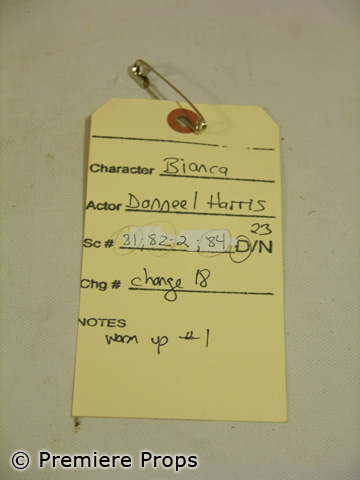 Character Bianca
Actor Danneel Harris
23
Sc # 81, 82-2; 84, D/N
Chg # change 18
NOTES
warm up #1
© Premiere Props